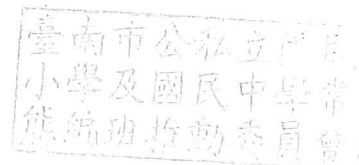 臺南市公私立
小學及國民中學常
能編班推動委員會